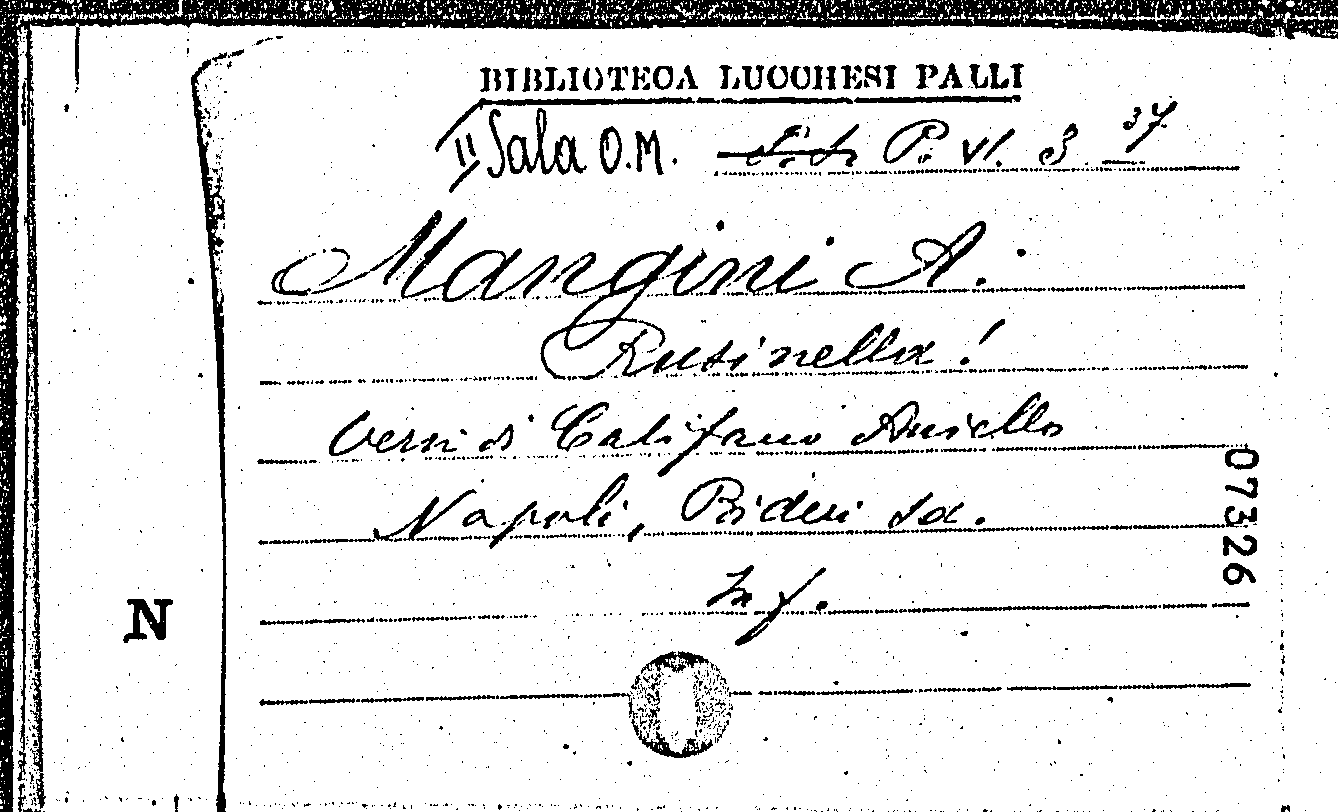 BIBLIOTECA LUCCHESI PALLI
II Sala O.M. P. VI. 3 37
Mangini A.
Rusinella!
Versi di Califano Aniello
Napoli, Bideri sd.
In f.
07326
N